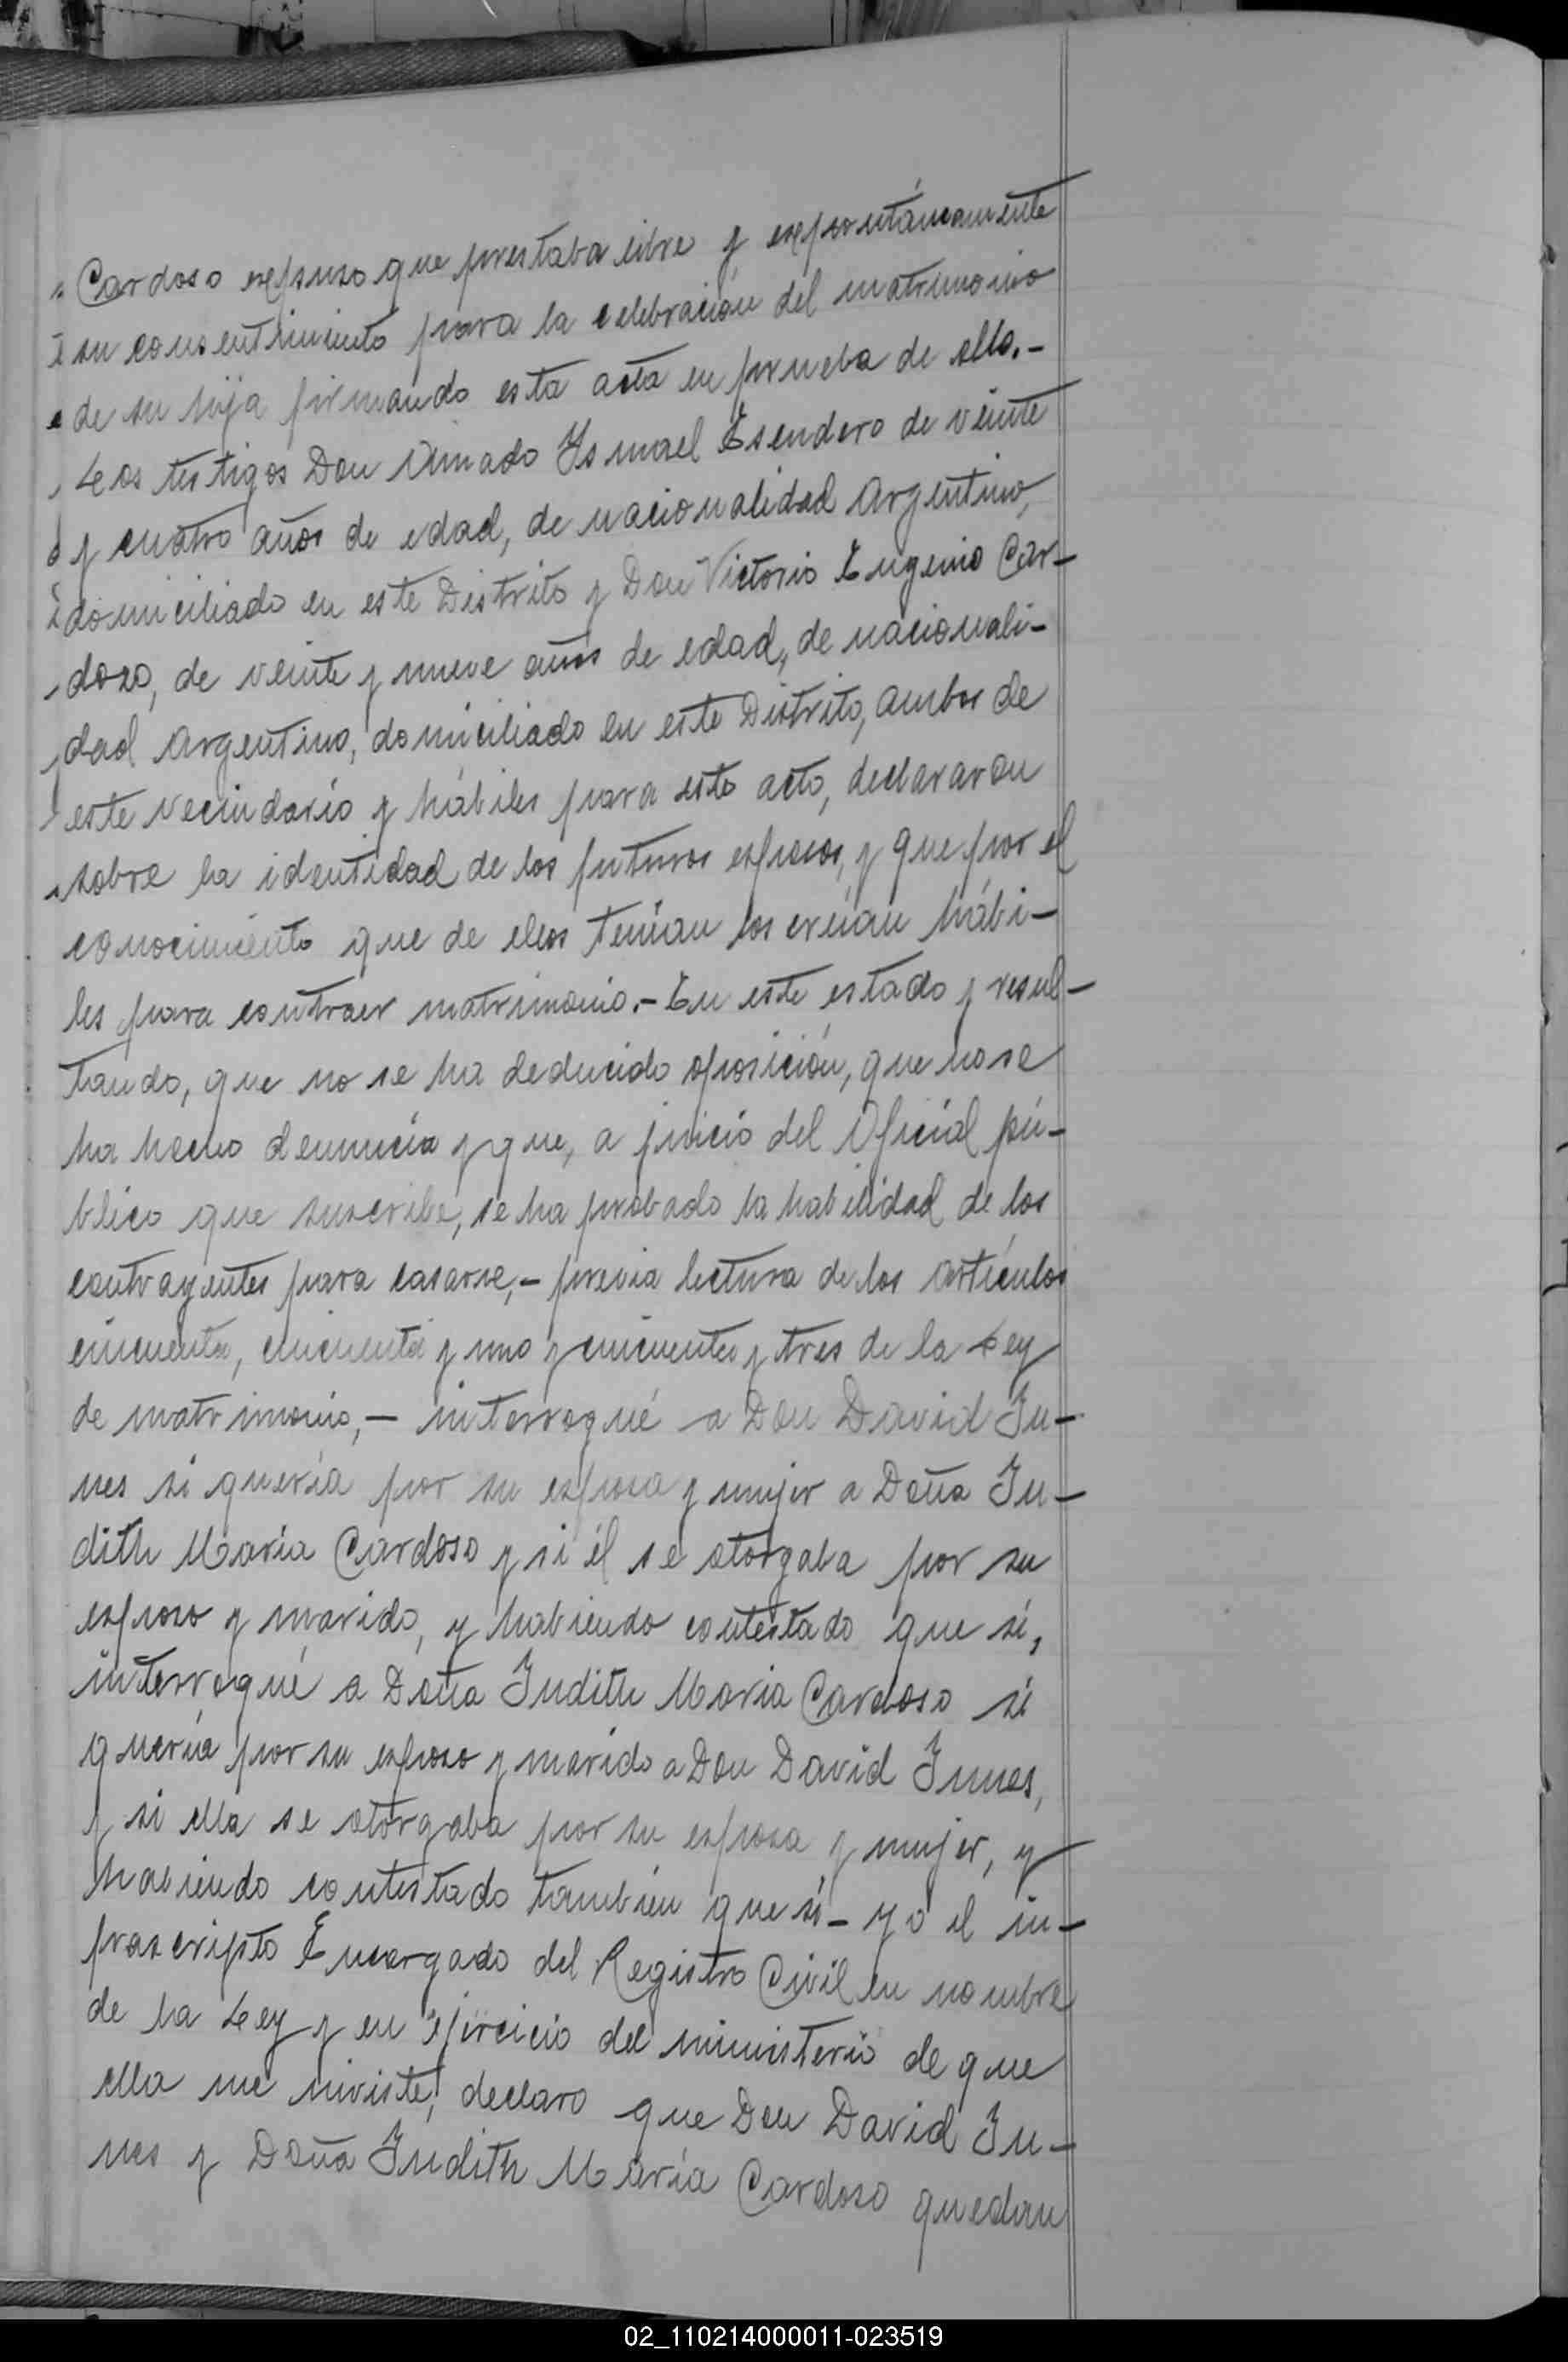 Cardoso expuso que prestaba libre y expontáneamente
su consentimiento para la celebración del matrimonio
de su hija firmando esta acta en prueba de ello.-
Los testigos Don Ismael Esendero de veinte
y cuatro años de edad, de nacionalidad Argentino,
domiciliado en este Distrito y Don Victorio Eugenio Car-
dozo, de veinte y nueve años de edad, de nacionali-
dad Argentino, domiciliado en este Distrito, ambos de
este vecindario y hábiles para este acto, declararon
sobre la identidad de los futuros esposos, y que por el
conocimiento que de ellos tenían los creían hábi-
les para contraer matrimonio.- En este estado y resul-
tando, que no se ha deducido oposición, que no se
ha hecho denuncia y que, a juicio del Oficial pú-
blico que suscribe, se ha probado la habilidad de los
contrayentes para casarse,- previa lectura de los artículos
cincuenta, cincuenta y uno y cincuenta y tres de la Ley
de matrimonio,- interrogué a Don David In-
nes si quería por su esposa y mujer a Doña Ju-
dith María Cardoso y si él se otorgaba por su
esposo y marido, y habiendo contestado que sí,
interrogué a Doña Judith María Cardoso si
quería por su esposo y marido a Don David Innes,
y si ella se otorgaba por su esposa y mujer, y
habiendo contestado también que sí- yo el in-
frascripto Encargado del Registro Civil en nombre
de la Ley y en ejercicio del ministerio de que
ella me inviste, declaro que Don David In-
nes y Doña Judith María Cardoso quedan
02_110214000011-023519